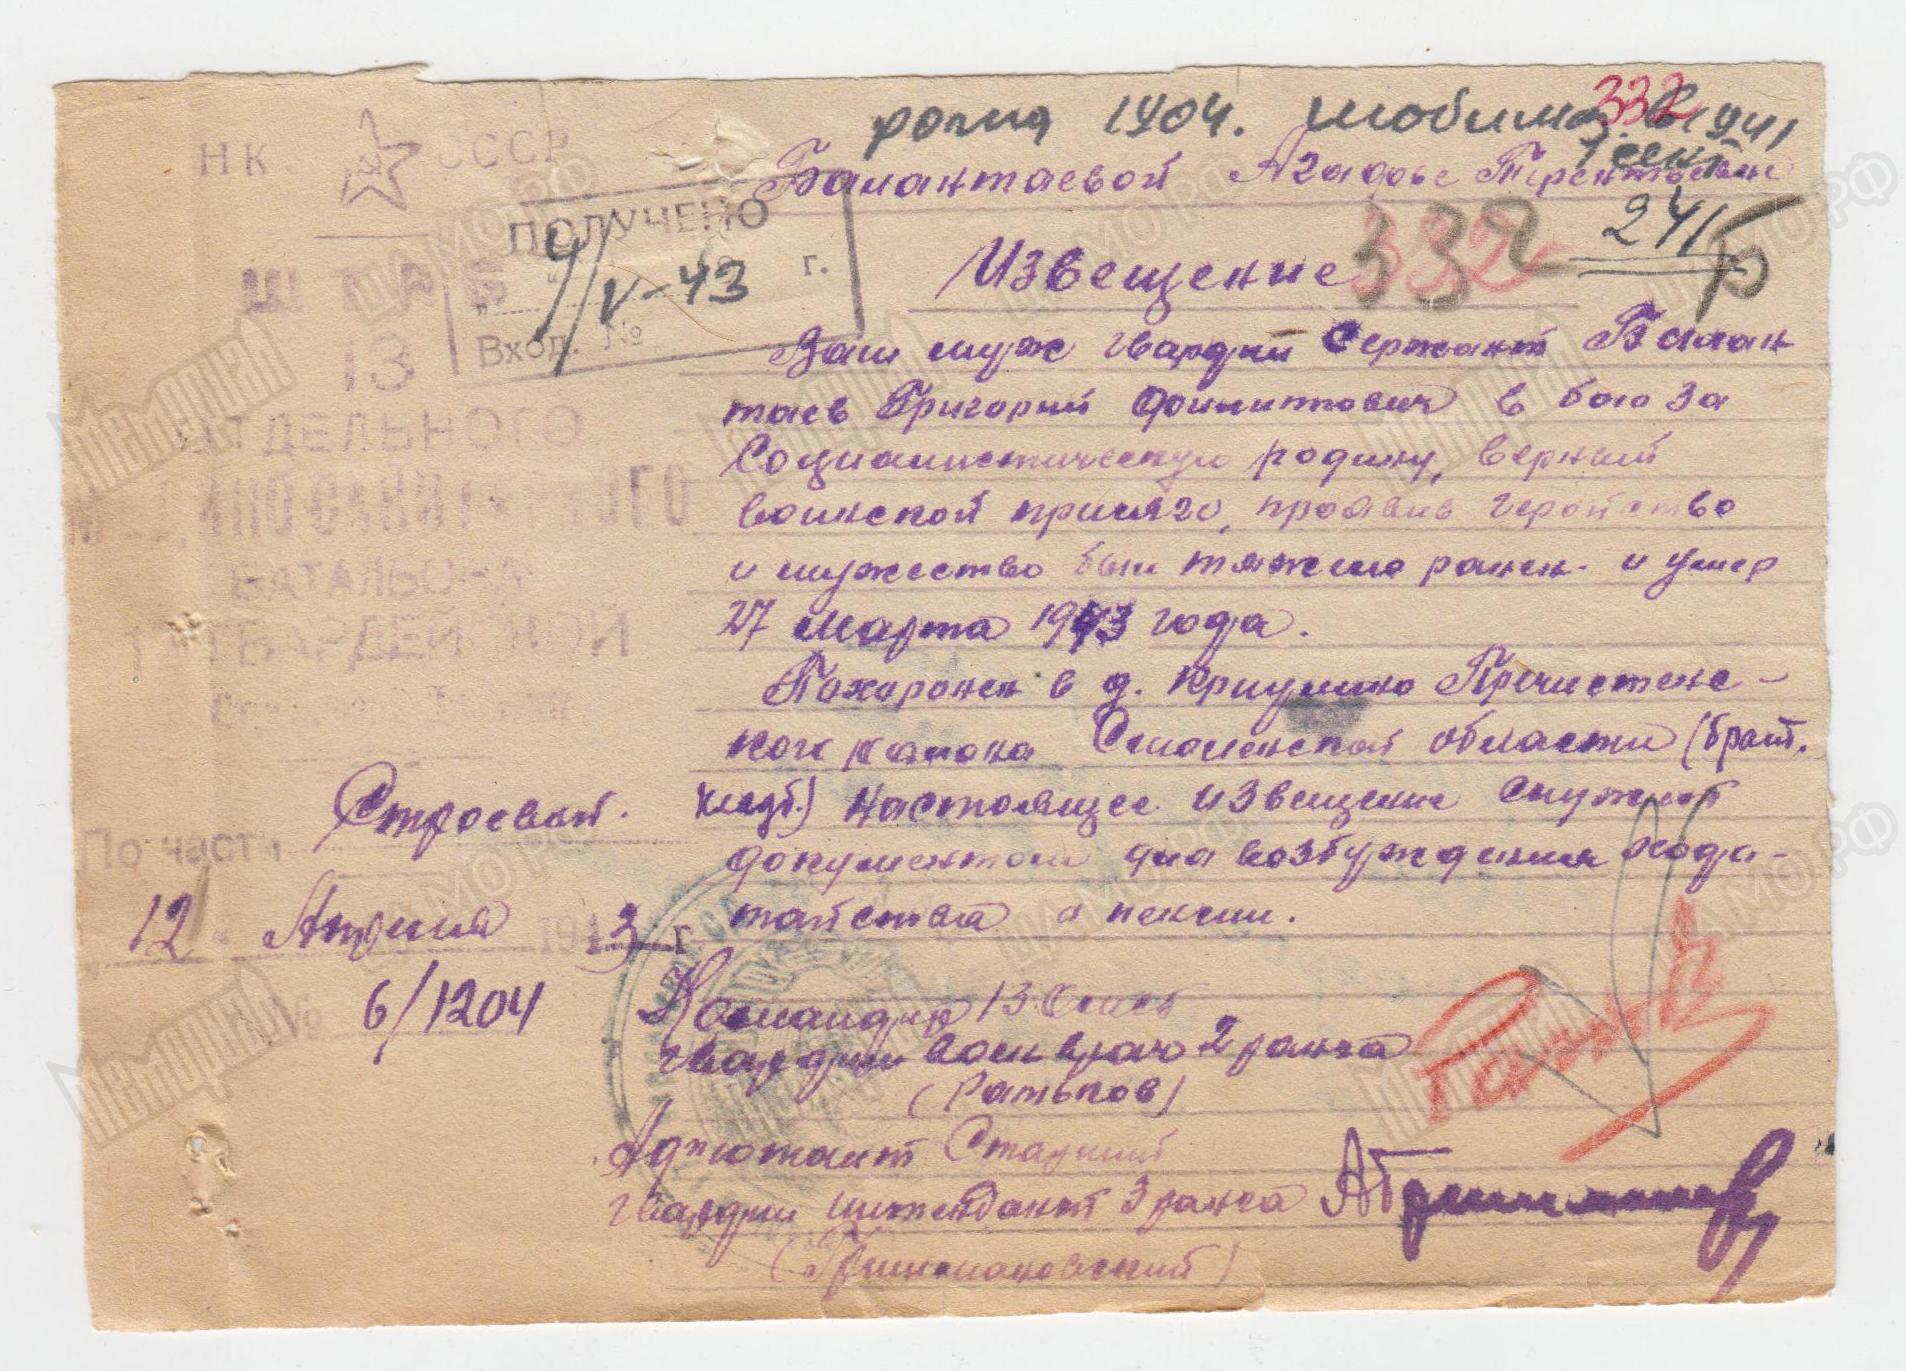 родил 1904. мобилиз. 1941
1 сент
332
НК СССР
Балантаевой Агафье Терентьевне
ПОЛУЧЕНО
9/V-43 г.
Вход. №
241
Б
332
Извещение
ШТАБ
13
ОТДЕЛЬНОГО
БАТАЛЬОНА
ГВАРДЕЙСКОЙ
Ваш муж гвардии Сержант Балан
таев Григорий в бою за
Социалистическую родину, верный
воинской присяге, проявив геройство
и мужество был тяжело ранен. и умер
27 марта 1943 года.
Похоронен в д. Криулино Пречистенс-
кого района Смоленской области (брат.
кладб.) Настоящее извещение служит
документом для возбуждения хода-
тайства о пенсии.
По части Строевой.
12 Апреля 1943 г.
№ 6/1204
Командир 13
гвардии Воен врач 2 ранга
(Ратьков)
Адъютант Старший
гвардии интендант 3 ранга